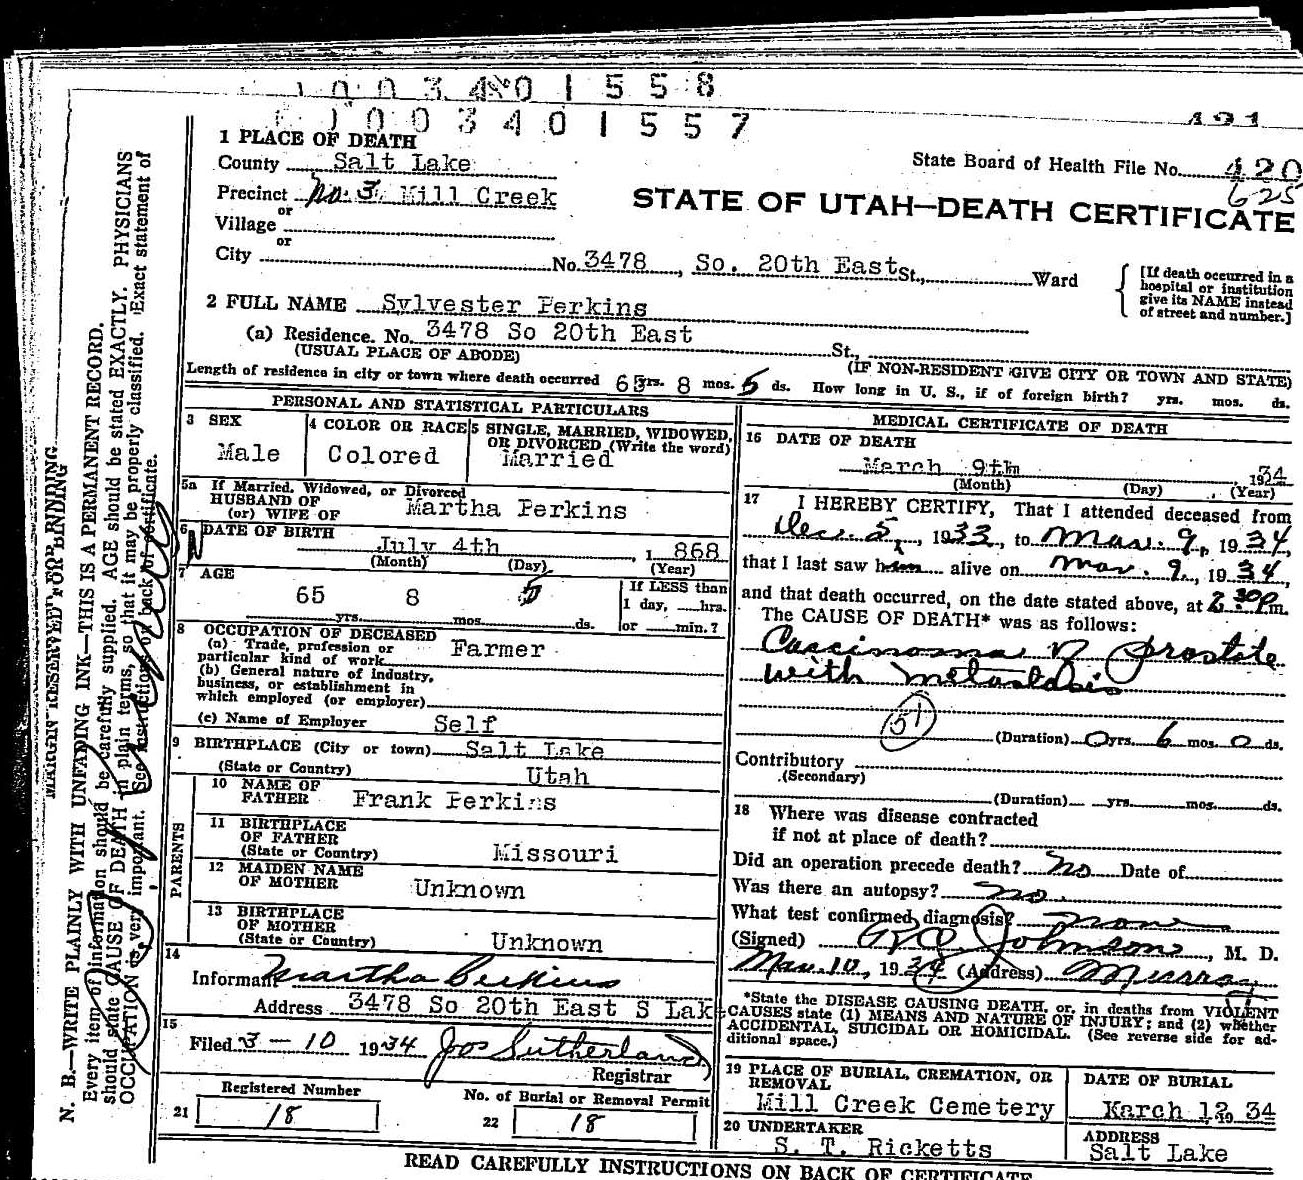 1 0 0 3 4 0 1 5 5 8
1 0 0 3 4 0 1 5 5 7
1 PLACE OF DEATH
County Salt Lake
State Board of Health File No. 420
625
Precinct No. 3 Mill Creek
STATE OF UTAH—DEATH CERTIFICATE
or
Village
or
City No. 3478, So. 20th East St., Ward
[If death occurred in a hospital or institution give its NAME instead of street and number.]
2 FULL NAME Sylvester Perkins
(a) Residence. No. 3478 So 20th East St.,
(USUAL PLACE OF ABODE) (IF NON-RESIDENT GIVE CITY OR TOWN AND STATE)
Length of residence in city or town where death occurred 65 yrs. 8 mos. 5 ds. How long in U. S., if of foreign birth? yrs. mos. ds.
PERSONAL AND STATISTICAL PARTICULARS
3 SEX
Male
4 COLOR OR RACE
Colored
5 SINGLE, MARRIED, WIDOWED,
OR DIVORCED (Write the word)
Married
5a If Married, Widowed, or Divorced
HUSBAND OF
(or) WIFE OF Martha Perkins
6 DATE OF BIRTH
July 4th 1 868
(Month) (Day) (Year)
7 AGE
65 yrs. 8 mos. 5 ds.
If LESS than
1 day, hrs.
or min.?
8 OCCUPATION OF DECEASED
(a) Trade, profession or
particular kind of work Farmer
(b) General nature of industry,
business, or establishment in
which employed (or employer)
(c) Name of Employer Self
9 BIRTHPLACE (City or town) Salt Lake
(State or Country) Utah
PARENTS
10 NAME OF
FATHER Frank Perkins
11 BIRTHPLACE
OF FATHER
(State or Country) Missouri
12 MAIDEN NAME
OF MOTHER Unknown
13 BIRTHPLACE
OF MOTHER
(State or Country) Unknown
14
Informant Martha Perkins
Address 3478 So 20th East S Lake
15
Filed 3-10 1934 Jos Sutherland
Registrar
Registered Number
21 18
No. of Burial or Removal Permit
22 18
MEDICAL CERTIFICATE OF DEATH
16 DATE OF DEATH
March 9th, 1934
(Month) (Day) (Year)
17 I HEREBY CERTIFY, That I attended deceased from
Dec. 5, 1933, to Mar. 9, 1934,
that I last saw him alive on Mar. 9, 1934,
and that death occurred, on the date stated above, at 2:30 P.m.
The CAUSE OF DEATH* was as follows:
Carcinoma of prostate
with metastasis
51
(Duration) 0 yrs. 6 mos. 0 ds.
Contributory
(Secondary)
(Duration) yrs. mos. ds.
18 Where was disease contracted
if not at place of death?
Did an operation precede death? no Date of
Was there an autopsy? no.
What test confirmed diagnosis? none
(Signed) Johnson, M. D.
Mar. 10, 1934 (Address) Murray
*State the DISEASE CAUSING DEATH, or, in deaths from VIOLENT
CAUSES state (1) MEANS AND NATURE OF INJURY; and (2) whether
ACCIDENTAL, SUICIDAL OR HOMICIDAL. (See reverse side for ad-
ditional space.)
19 PLACE OF BURIAL, CREMATION, OR
REMOVAL
Mill Creek Cemetery
DATE OF BURIAL
March 12, 19 34
20 UNDERTAKER
S. T. Ricketts
ADDRESS
Salt Lake
READ CAREFULLY INSTRUCTIONS ON BACK OF CERTIFICATE
MARGIN RESERVED FOR BINDING
N. B.—WRITE PLAINLY WITH UNFADING INK—THIS IS A PERMANENT RECORD.
Every item of information should be carefully supplied. AGE should be stated EXACTLY. PHYSICIANS
should state CAUSE OF DEATH in plain terms, so that it may be properly classified. Exact statement of
OCCUPATION is very important. See instructions on back of certificate.